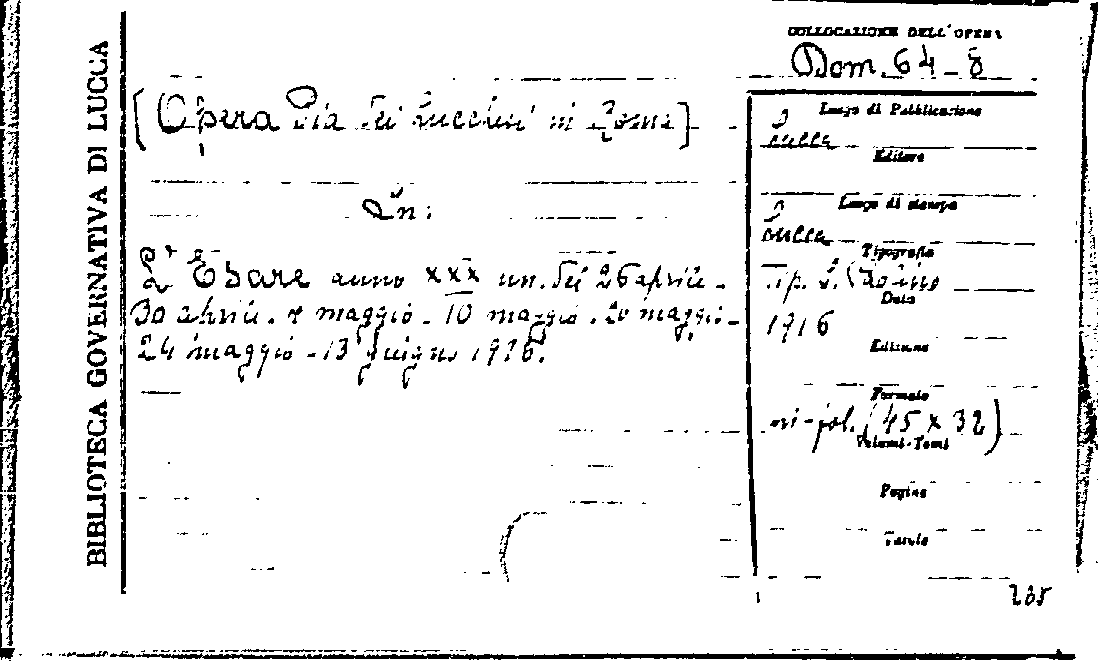 BIBLIOTECA GOVERNATIVA DI LUCCA
COLLOCAZIONE DELL'OPERA
Dom. 64 - 8
[Opera Pia dei Lucchesi in Roma]
In:
L'Esare anno XXX nn. dei 26 aprile -
30 aprile - 7 maggio - 10 maggio - 20 maggio -
24 maggio - 13 giugno 1916.
Luogo di Pubblicazione
Lucca
Editore
Luogo di stampa
Lucca
Tipografia
Tip. L.
Data
1916
Edizione
Formato
in-fol. (45 x 32)
Volumi-Tomi
Pagine
Tavole
205